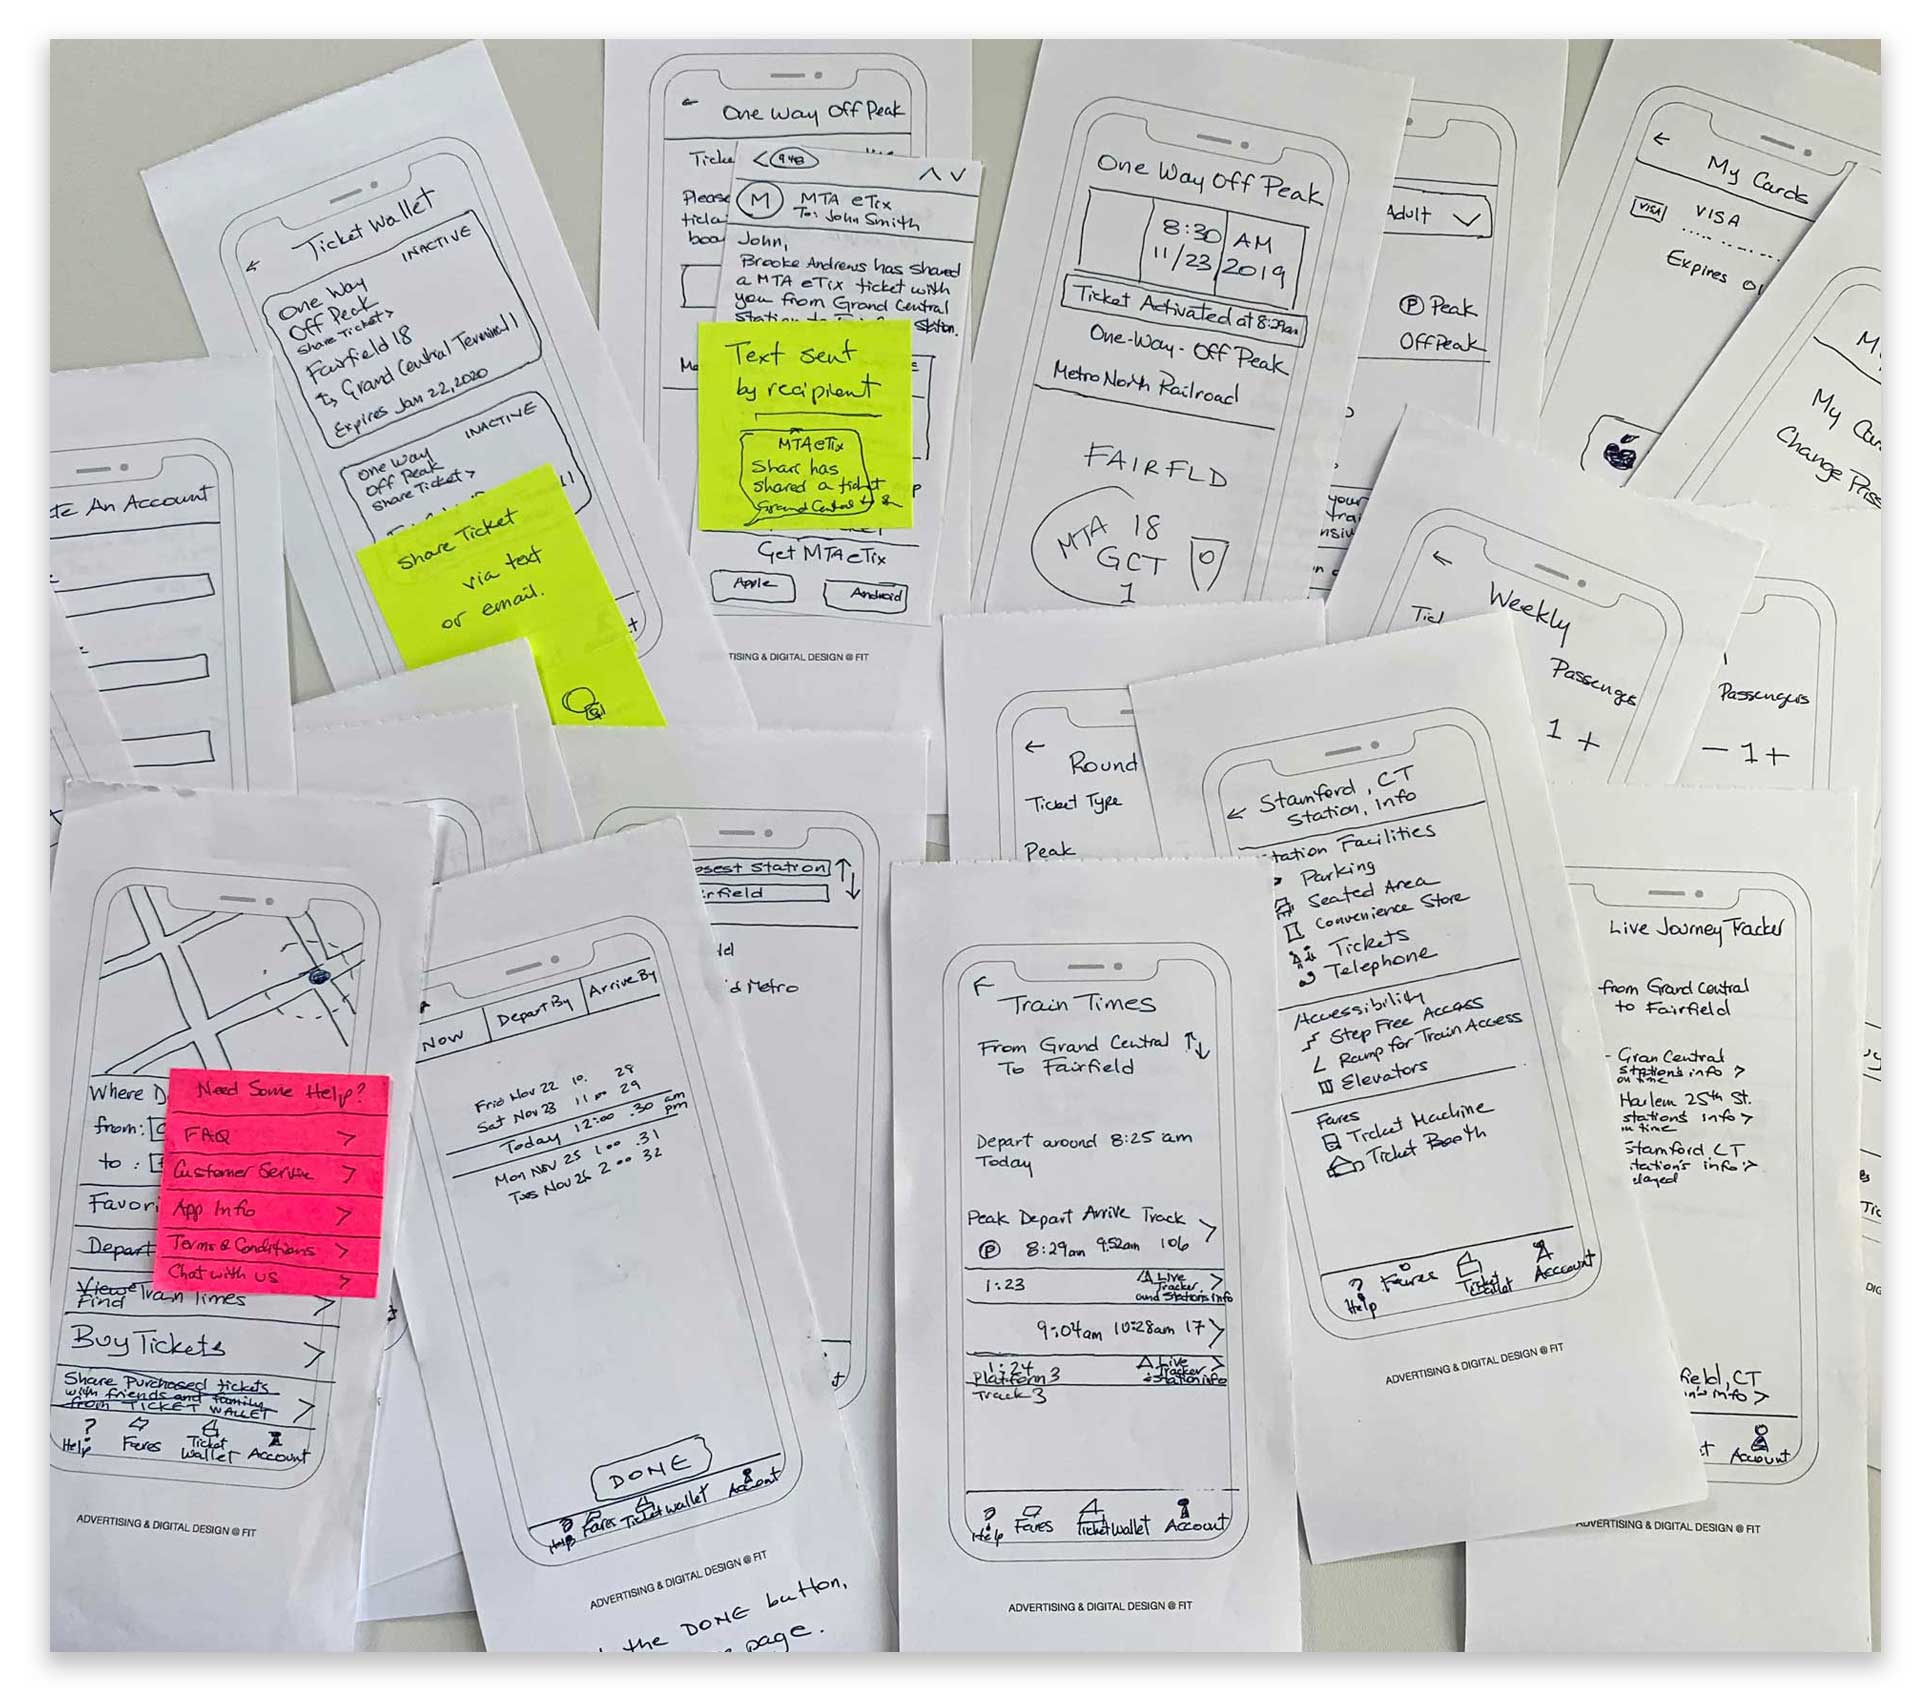 Ticket Wallet
INACTIVE
One Way
Off Peak
Share Ticket>
Fairfield 18
Grand Central Terminal 1
Expires Jan 22, 2020
INACTIVE
One Way
Off Peak
Share Ticket >
Share Ticket
via text
or email.
One Way Off Peak
Please
948
M
MTA eTix
To: John Smith
John,
Brooke Andrews has shared
a MTA eTix ticket with
you from Grand Central
Station to Station.
Text sent
by recipient
MTA eTix
Share has
shared a ticket
Grand Central to
Get MTA eTix
Apple Android
TISING & DIGITAL DESIGN @ FIT
One Way Off Peak
8:30 AM
11/23 2019
Ticket Activated at 8:29am
One-Way-Off Peak
Metro North Railroad
FAIRFLD
MTA 18
GCT 0
1
Adult
P Peak
Off Peak
your
My Cards
VISA VISA
Expires 01
My Car
Change Pass
te An Account
Weekly
Passenge
1 +
Passengers
- 1 +
Round
Ticket Type
Peak
Stamford, CT
Station, Info
tation Facilities
Parking
Seated Area
Convenience Store
Tickets
Telephone
Accessibility
Step Free Access
Ramp for Train Access
Elevators
Fares
Ticket Machine
Ticket Booth
Help Fares Ticket Wallet Acccount
ADVERTISING & DIGITAL DESIGN @ FIT
Live Journey Tracker
from Grand Central
to Fairfield
- Gran Central
Station's info >
on time
Harlem 25th St.
stations info >
in time
Stamford CT
tation's info >
elayed
field, CT
info >
Account
DVERTISING & DIGITAL DESIGN @ FIT
Where D
from:
to :
Favori
Depart
View Train Times
Find
Buy Tickets
Share Purchased tickets
with friends and family
from TICKET WALLET
Help Fares Ticket Wallet Account
ADVERTISING & DIGITAL DESIGN @ FIT
Need Some Help?
FAQ >
Customer Service >
App Info >
Terms & Conditions >
Chat with us >
Now Depart By Arrive By
Frid Nov 22 10. 28
Sat Nov 23 11 00 29
Today 12:00 .30 am
pm
Mon Nov 25 1 00 .31
Tues Nov 26 2 00 32
DONE
Help Fares Ticket Wallet Account
ADVERTISING & DIGITAL DESIGN @ FIT
the DONE button,
page.
osest Station
rfield
d Metro
Train Times
From Grand Central
To Fairfield
Depart around 8:25 am
Today
Peak Depart Arrive Track >
P 8:29am 9:52am 106
1:23 Live Tracker and Station's Info >
9:04am 10:28am 17 >
1:24 Live Tracker + Station info >
Platform 3
Track 3
Help Fares Ticket Wallet Account
ADVERTISING & DIGITAL DESIGN @ FIT